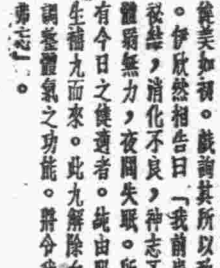 美如初。戲詢其所以
。伊欣然相告曰「我前
秘結，消化不良，神志
體弱無力，夜間失眠。所
有今日之健適者。純由服
生補丸而來。此丸解除
調整體氣之功能。將令我
弗忘』。